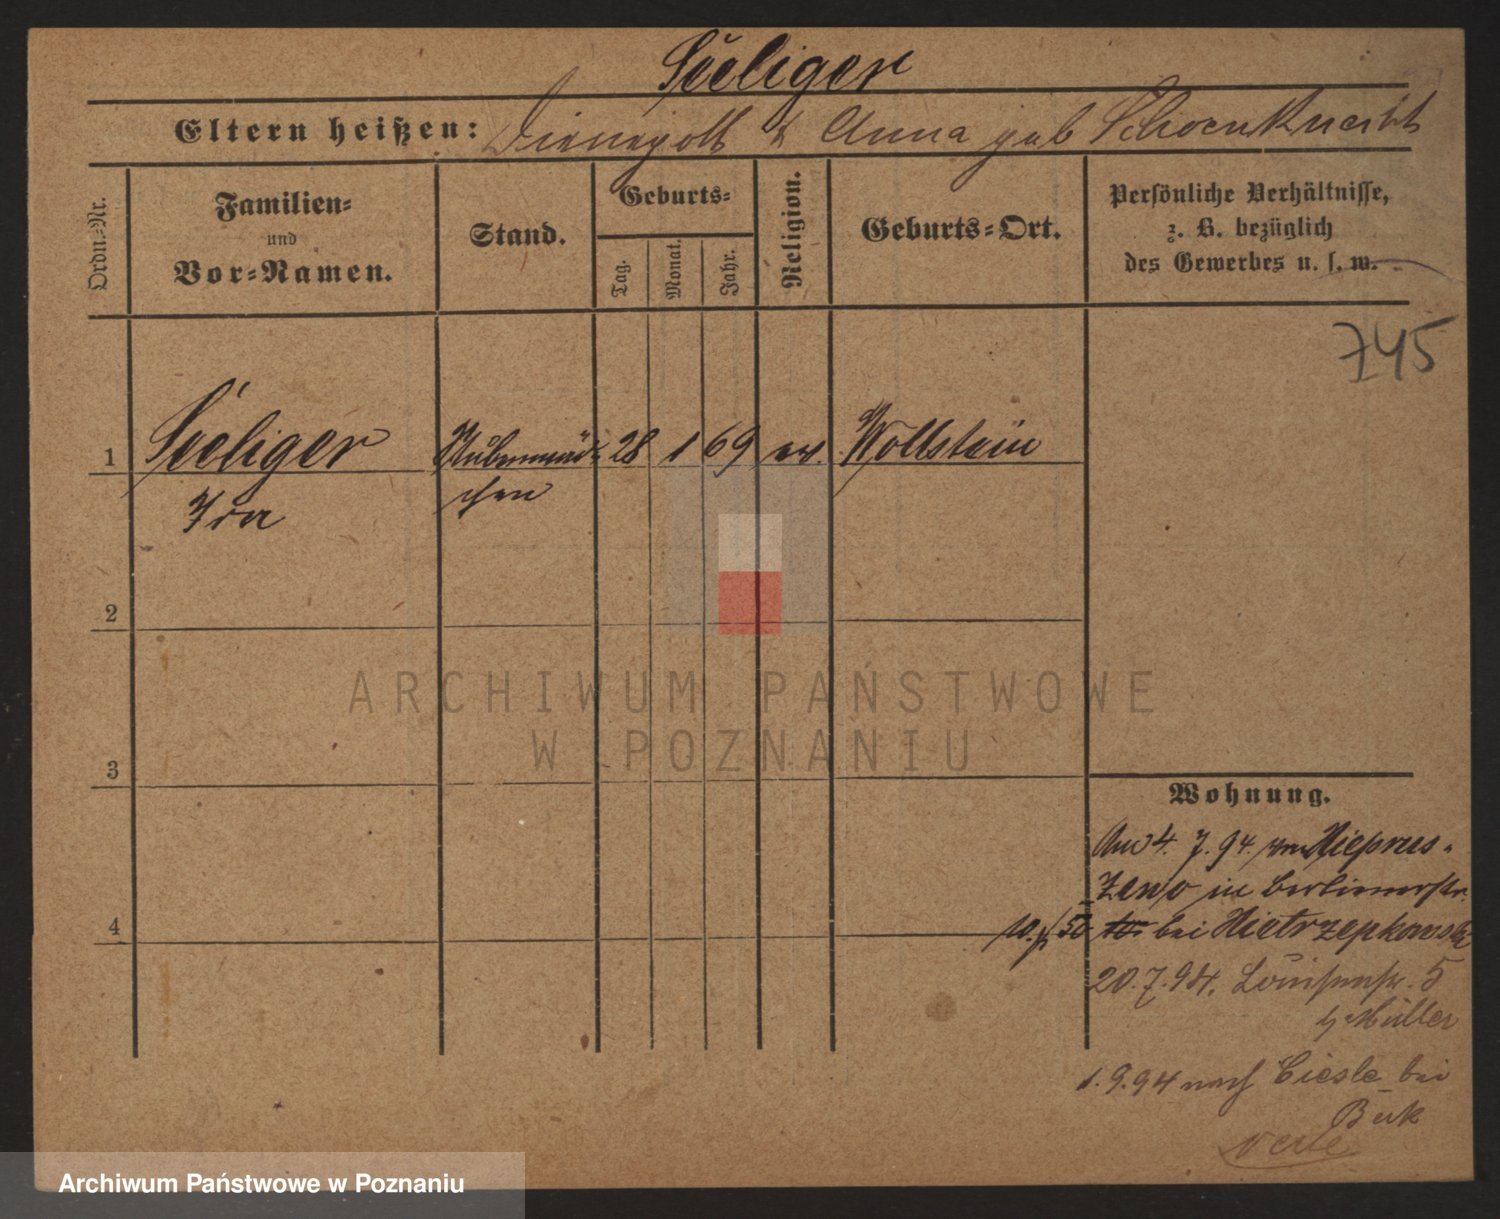 Seeliger
Eltern heißen: & Anna geb Schoenknecht
Ordn.-Nr.
Familien-
und
Vor-Namen.
Stand.
Geburts-
Tag.
Monat.
Jahr.
Religion.
Geburts-Ort.
Persönliche Verhältnisse,
z. B. bezüglich
des Gewerbes u. s. w.
745
1 Seeliger Stubenmäd- 28 1 69 ev. Wollstein
Ida chen
2
3
4
Wohnung.
Am 4. 7. 94 von Nieprus-
zewo in Berlinerstr.
10. 50 bei Pietrzepkowski
20.7.94. Louisenstr. 5
b Müller
1.9.94 nach Ciesle bei
Buk
ARCHIWUM PAŃSTWOWE
W POZNANIU
Archiwum Państwowe w Poznaniu